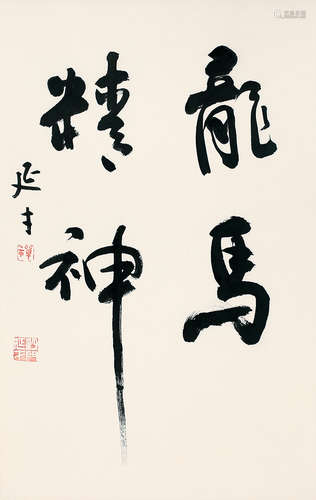 龍馬
精神
延才